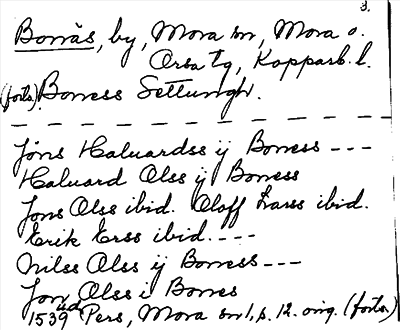 3.
Bonäs, by, Mora sn, Mora o.
Orsa tg, Kopparb. l.
(forts.) Boness Settungh.
Jöns Haluardss ij Boness ---
Haluard Olss ij Boness
Jons Olss ibid. Oloff Larss ibid.
Erik Erss ibid. ---
Nilss Olss ij Boness ---
Jon Olss i Bones
1539 Pers, Mora sn 1, s. 12. orig. (forts.)